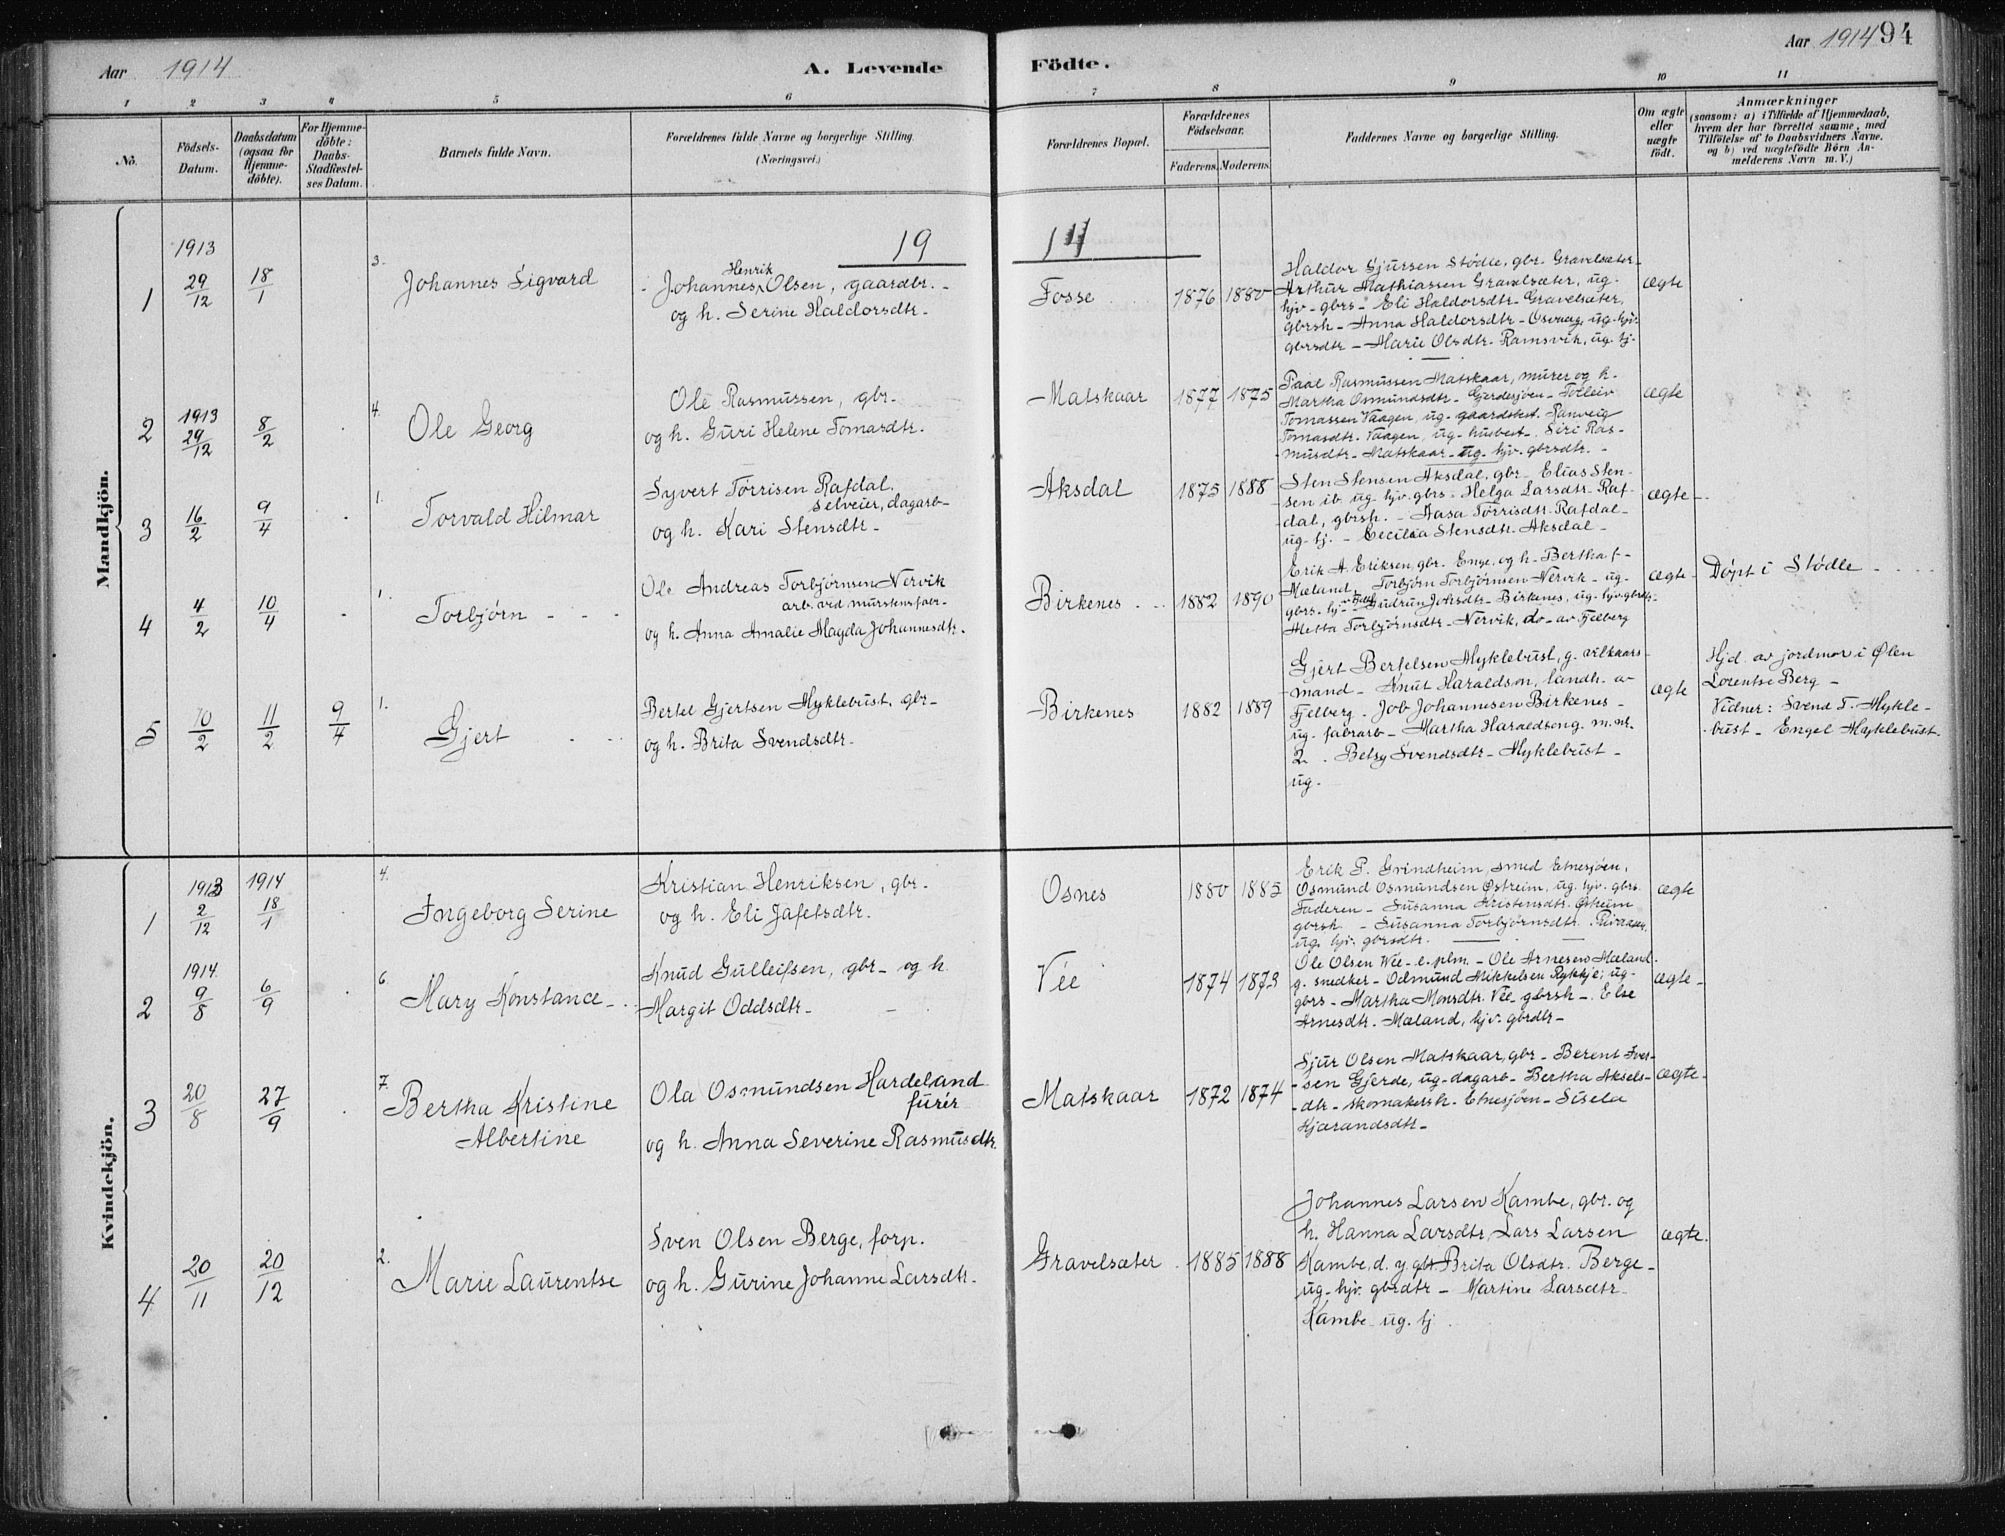 Aar 1914
A. Levende Födte.
Aar 1914 94
1 2 3 4 5 6 7 8 9 10 11
No.
Födsels-Datum.
Daabsdatum (ogsaa for Hjemme-döbte).
For Hjemme-döbte: Daabs-Stadfæstel-ses Datum.
Barnets fulde Navn.
Forældrenes fulde Navne og borgerlige Stilling.
(Næringsvei.)
Forældrenes Bopæl.
Forældrenes Födselsaar.
Faderens. Moderens.
Faddernes Navne og borgerlige Stilling.
Om ægte eller uægte födt.
Anmærkninger
(saasom: a) i Tilfælde af Hjemmedaab,
hvem der har forrettet samme, med
Tilföielse af to Daabsvidners Navne.
og b) ved uægtefödte Börn An-
melderens Navn m. V.)
19 14
Mandkjön.
1 1913 29/12 18/1 3. Johannes Sigvard
Johannes Henrik Olsen, gaardbr.
og h. Serine Haldorsdtr.
Fosse 1876 1880
Haldor Sjursen Stödle, gbr. Gravelsæter-
Arthur Mathiassen Gravelsæter, ug.
hjv. gbrs. Eli Haldorsdtr. Gravelsæter,
gbrsh. Anna Haldorsdtr. Osvaag, ug. hjv.
gbrsdtr. Marie Olsdtr. Ramsvik, ug. tj.
ægte
2 1913 29/12 8/2 4. Ole Georg
Ole Rasmussen, gbr.
og h. Guri Helene Tomasdtr.
Matskaar 1877 1875
Paal Rasmussen Matskaar, murer og h.
Martha Osmundsdtr. Gjerdesjøen Torleiv
Tomassen Vaagen, ug. gaardsbest. Ranveig
Tomasdtr. Vaagen, ug. husbest. Siri Ras-
musdtr. Matskaar ug. hjv. gbrsdtr.
ægte
3 16/2 9/4 1. Torvald Hilmar
Syvert Tørrisen Rafdal.
selveier, dagarb-
og h. Kari Stensdtr.
Aksdal 1875 1888
Sten Stensen Aksdal, gbr. Elias Sten-
sen ib. ug. hjv. gbrs. Helga Larsdtr. Raf-
dal, gbrsh. Aasa Tørrisdtr. Rafdal
ug. tj. Cecilia Stensdtr. Aksdal
ægte
4 4/2 10/4 1. Torbjørn
Ole Andreas Torbjørnsen Nervik
arb. ved murstensfabr.
og h. Anna Amalie Magda Johannesdtr.
Birkenes 1882 1890
Erik A. Eriksen, gbr. Enge, og h. Bertha f.
Mæland Torbjørn Torbjørnsen Nervik ug.
gbrs. hjv. Gudrun Johsdtr. Birkenes, ug. hjv. gbrdtr.
Metta Torbjørnsdtr. Nervik, do. av Fjelberg
ægte
Døpt i Stødle
5 10/2 11/2 9/4 1. Gjert
Bertel Gjertsen Myklebust, gbr.
og h. Brita Svendsdtr.
Birkenes 1882 1889
Gjert Bertelsen Myklebust, g. vilkaars-
mand Knut Haraldson, landh. av
Fjelberg. Job Johannesen Birkenes
ug. fabrarb. Martha Haraldsong. m. nr.
2. Betsy Svendsdtr. Myklebust
ug.
ægte
Hjd. av jordmor i Ølen
Lorentse Berg
Vidner: Svend T. Mykle-
bust. Engel Myklebust.
Kvindekjön.
1 1913 2/12 1914 18/1 4. Ingeborg Serine
Kristian Henriksen, gbr.
og h. Eli Jafetsdtr.
Osnes 1880 1885
Erik P. Grindheim, smed Etnesjøen,
Osmund Osmundsen Østreim, ug. hjv. gbrs.
Faderen Susanna Kristensdtr. Østreim
gbrsh. Susanna Torbjørnsdtr.
ug. hjv. gbrsdtr.
ægte
2 1914. 9/8 6/9 6. Mary Konstance
Knud Gulleifsen, gbr. og h.
Margit Oddsdtr.
Vée 1874 1873
Ole Olsen Wée e. plm. Ole Arnesen Mæland
g. snedker Odmund Mikkelsen Rykkje, ug.
gbrs. Martha Monsdtr. Vée gbrsh. Else
Arnesdtr. Mæland, hjv. gbrdtr.
ægte
3 20/8 27/9 7. Bertha Kristine
Albertine
Ola Osmundsen Hardeland
furér
og h. Anna Severine Rasmusdtr.
Matskaar 1872 1874
Sjur Olsen Matskaar, gbr. Berent Iver-
sen Gjerde, ug. dagarb. Bertha Aksels-
dtr. skomakersh. Etnesjøen Sisela
Hjærandsdtr.
ægte
4 20/11 20/12 2. Marie Laurentse
Sven Olsen Berge, forp.
og h. Gurine Johanne Larsdtr.
Gravelsæter 1885 1888
Johannes Larsen Kambe, gbr. og
h. Hanna Larsdtr. Lars Larsen
Kambe, d. y. gbr. Brita Olsdtr. Berge
ug. hjv. gbrdtr. Martine Larsdtr.
Kambe ug. tj.
ægte.